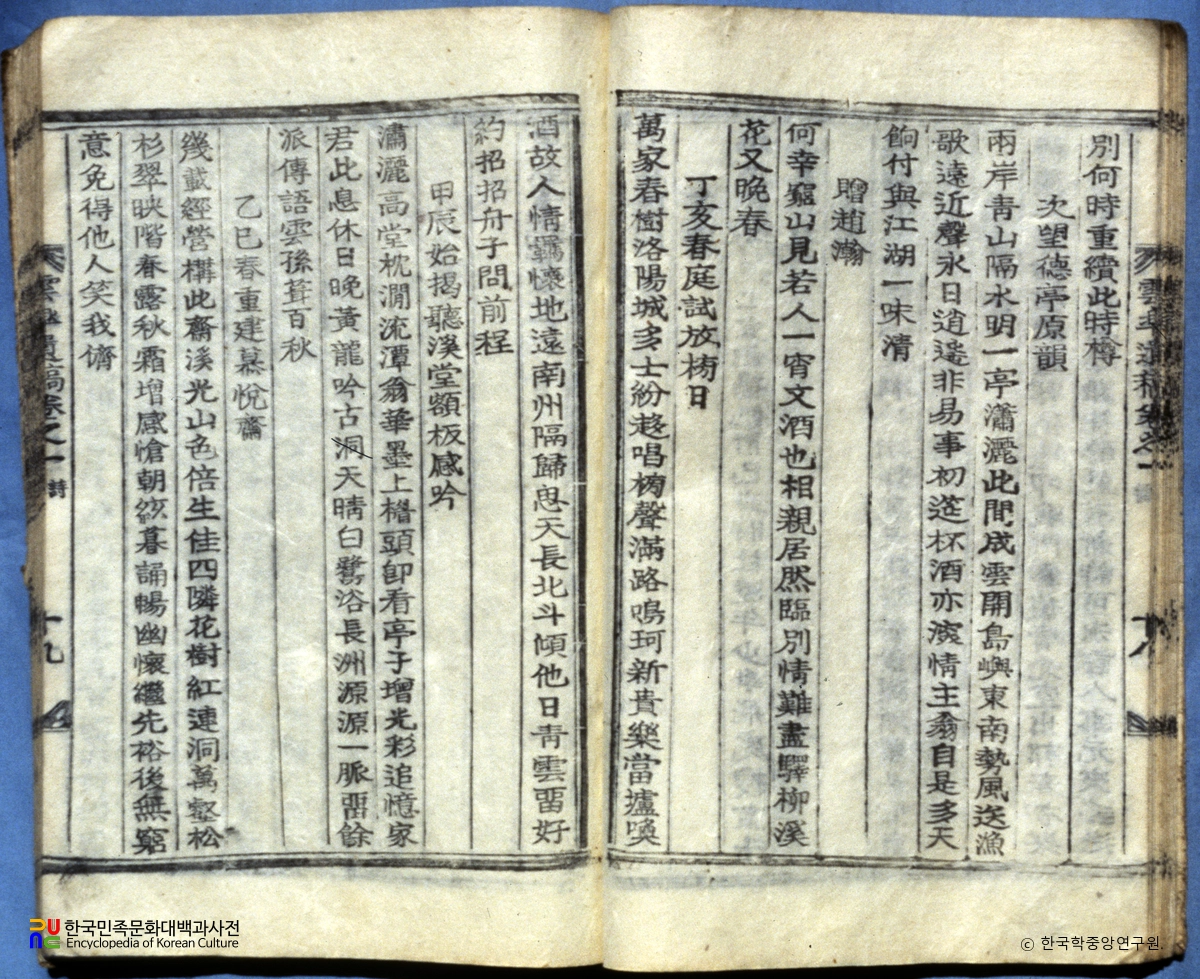 別何時重續此時樽
次望德亭原韻
兩岸靑山隔水明一亭瀟灑此間成雲開島嶼東南勢風送漁
歌遠近聲永日逍遙非易事初筵杯酒亦濃情主翁自是多天
餉付與江湖一味淸
贈趙瀚
何幸窮山見若人一宵文酒也相親居然臨別情難盡驛柳溪
花又晩春
丁亥春庭試放榜日
萬家春樹洛陽城多士紛趍唱榜聲滿路鳴珂新貴樂當壚喚
酒故人情羈懷地遠南州隔歸思天長北斗傾他日靑雲留好
約招招舟子問前程
甲辰始揭聽溪堂額板感吟
瀟灑高堂枕澗流潭翁華墨上楣頭卽看亭子增光彩追憶家
君此息休日晩黃龍吟古洞天晴白鷺浴長洲源源一脈留餘
派傳語雲孫葺百秋
乙巳春重建慕悅齋
幾載經營構此齋溪光山色倍生佳四隣花樹紅連洞萬壑松
杉翠映階春露秋霜增感愴朝絃暮誦暢幽懷繼先裕後無窮
意免得他人笑我儕
遺稿卷之一
詩
十八
十九
한국민족문화대백과사전
Encyclopedia of Korean Culture
© 한국학중앙연구원.